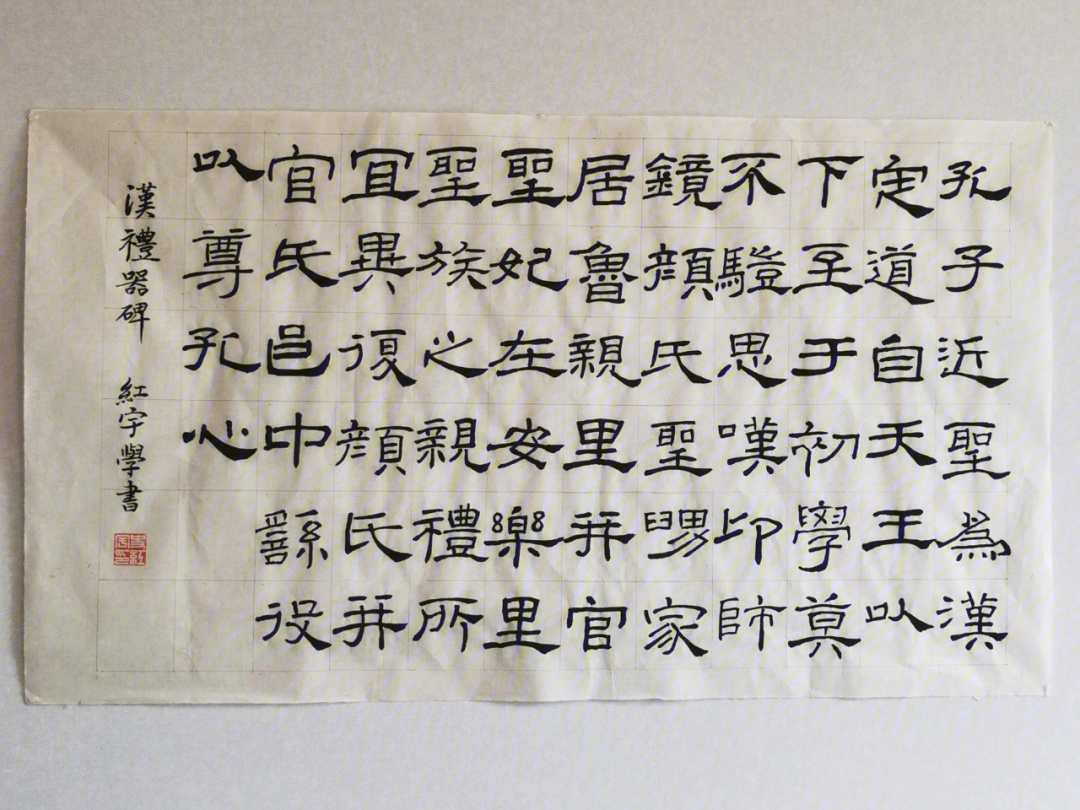 孔子近聖為漢
定道自天王以
下至于初學莫
不驥思嘆卬師
鏡顏氏聖舅家
居魯親里并官
聖妃在安樂里
聖族之親禮所
宜異復顏氏并
官氏邑中繇役
以尊孔心
漢禮器碑 紅宇學書